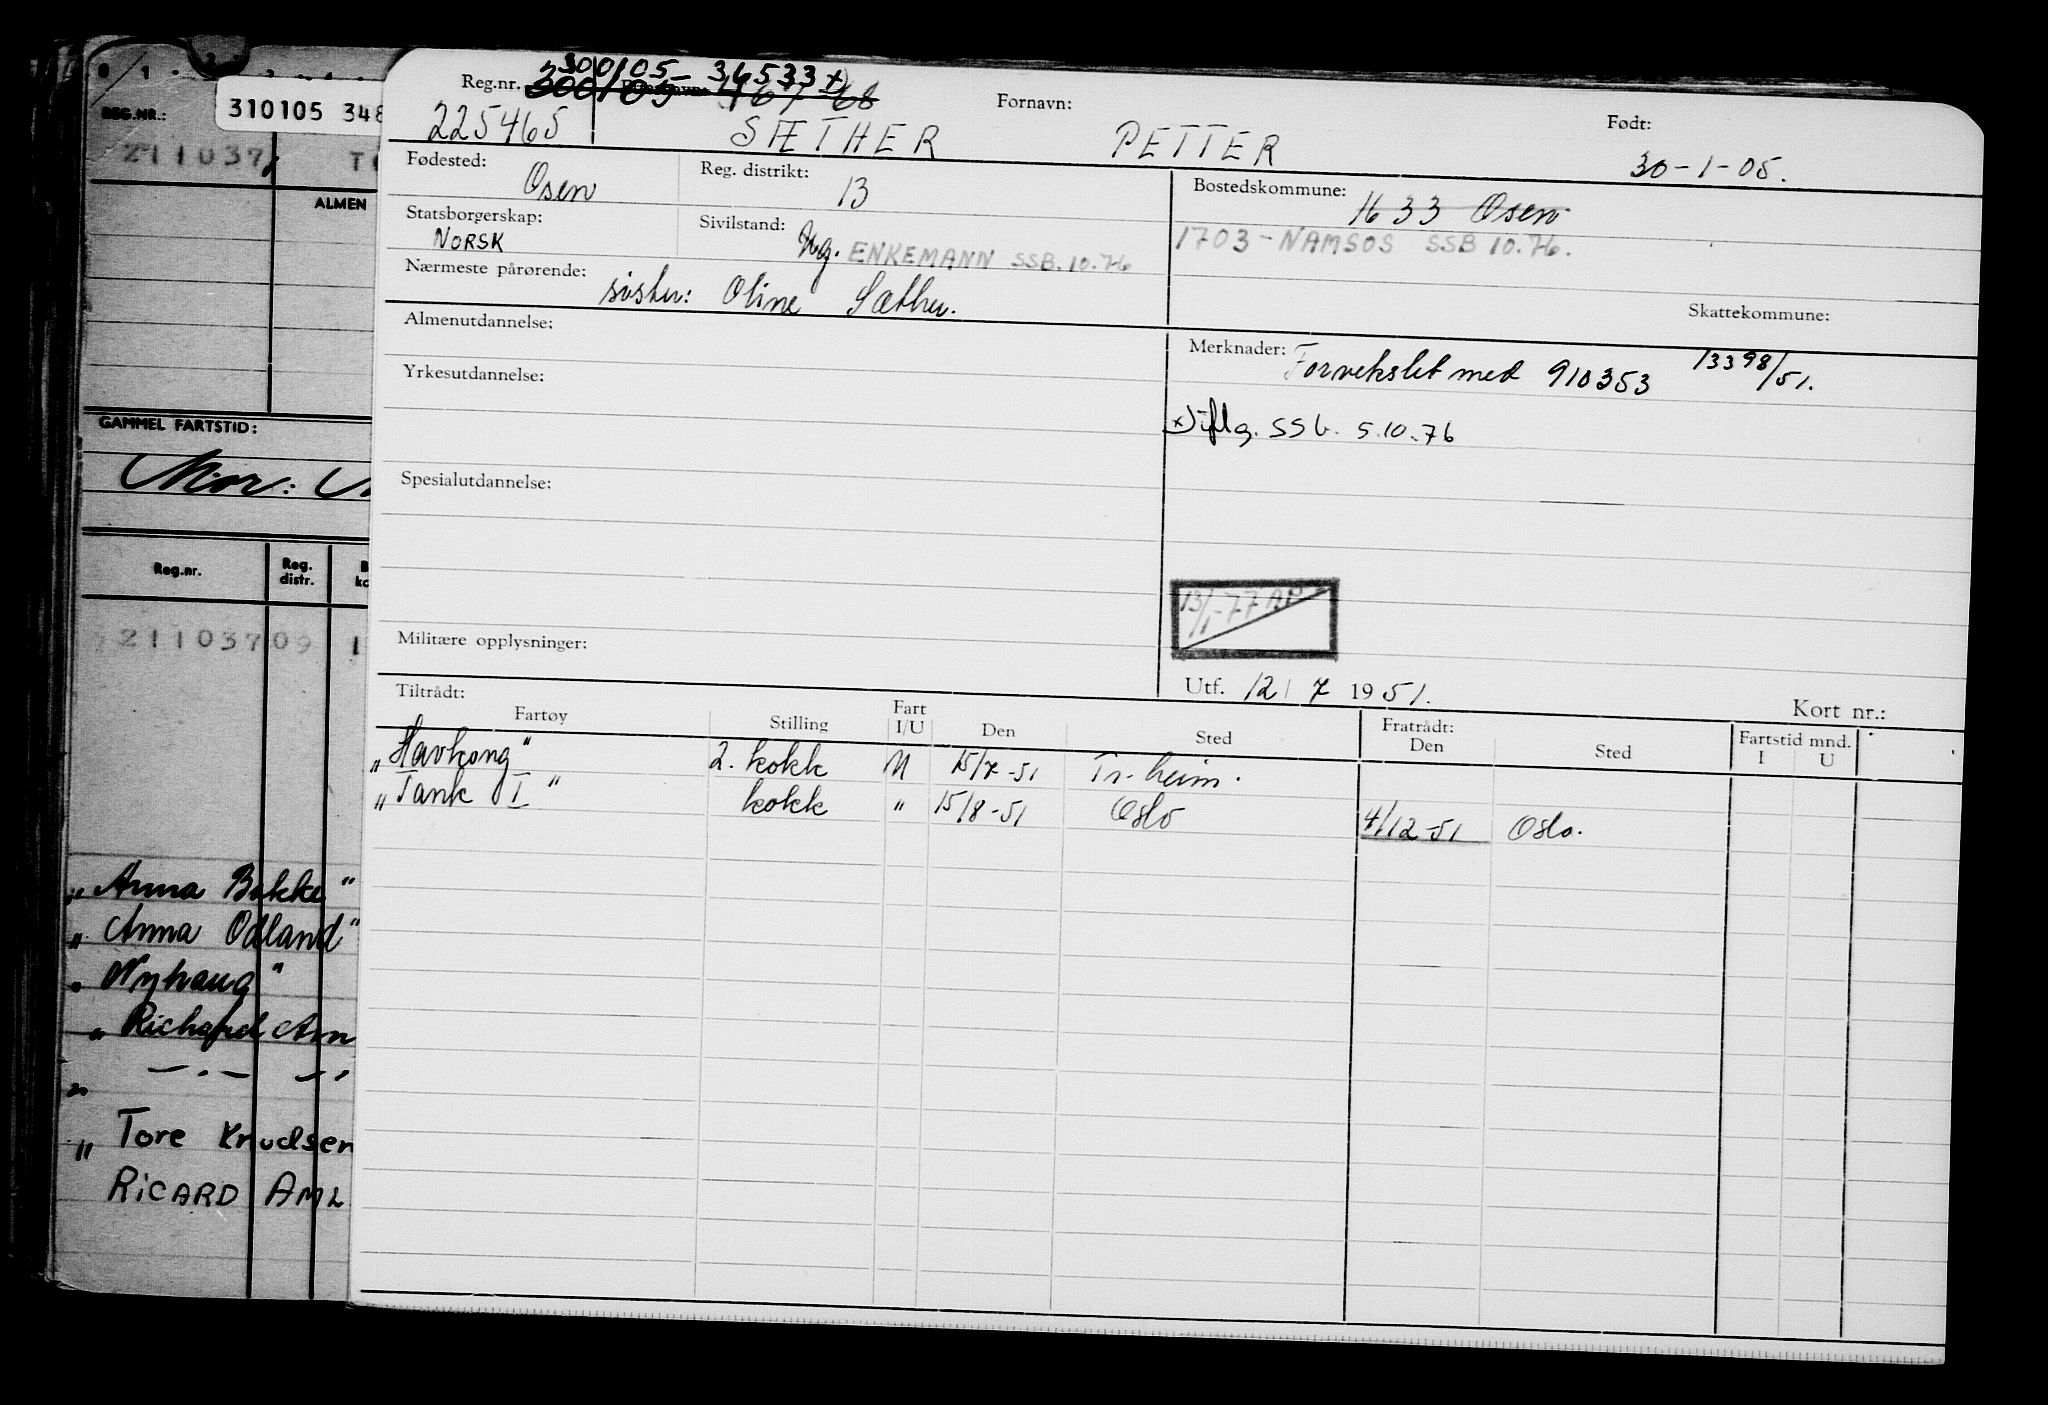 310105 348
REG.NR.:
211037
ALMEN
GAMMEL FARTSTID:
Mor:
Reg.nr.
Reg. distr.
21103709
„Anna Bakke"
„Anna Odland"
„Nyhaug"
„Richard Am
„ — . — "
„Tore Knudsen
RICARD AML
300105 - 34533 x)
Reg.nr.
225465
Fornavn:
Født:
SÆTHER PETTER
30-1-05.
Fødested:
Osen
Reg. distrikt:
13
Bostedskommune:
1633 Osen
1703 - NAMSOS SSB 10.76.
Statsborgerskap:
NORSK
Sivilstand:
Ug. ENKEMANN SSB. 10.76
Nærmeste pårørende:
søster: Oline Sæther.
Skattekommune:
Almenutdannelse:
Merknader: Forvekslet med 910353 13398/51.
Yrkesutdannelse:
x) iflg. SSb. 5.10.76
Spesialutdannelse:
13/1-77 AP
Militære opplysninger:
Utf. 12/7 1951.
Kort nr.:
Tiltrådt:
Fartøy
Stilling
Fart
I/U
Den
Sted
Fratrådt:
Den
Sted
Fartstid mnd.
I U
„Havkong" 2. kokk U 15/7-51 Tr.heim.
„Tank I" kokk " 15/8-51 Oslo 4/12-51 Oslo.